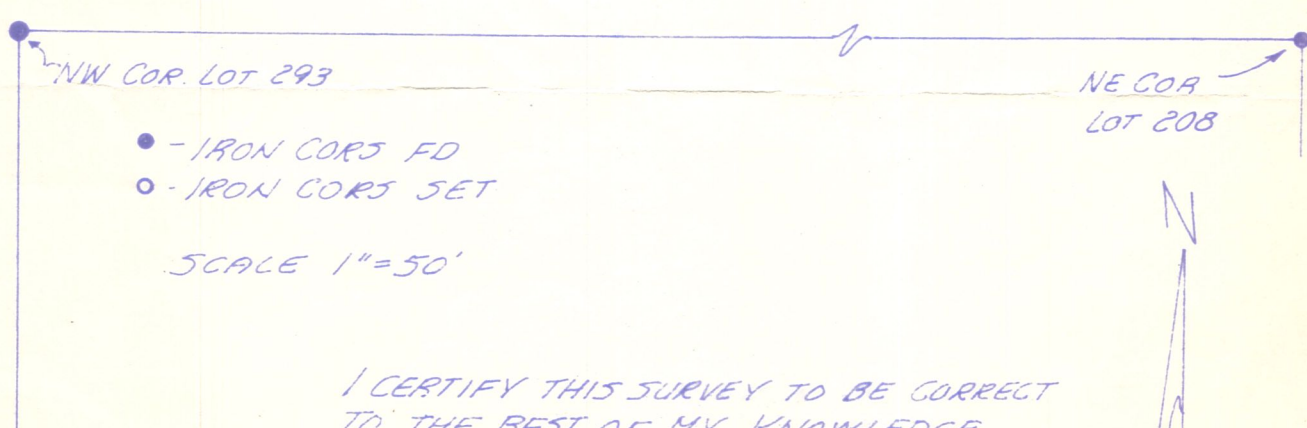 NW COR. LOT 293
NE COR
LOT 208
● - IRON CORS FD
○ - IRON CORS SET
N
SCALE 1"=50'
I CERTIFY THIS SURVEY TO BE CORRECT
TO THE BEST OF MY KNOWLEDGE